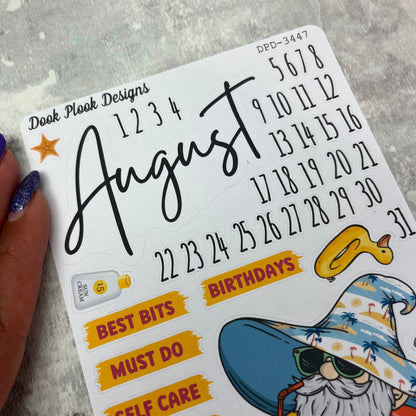 DPD-3447
Dook Plook Designs
1 2 3 4
5 6 7 8
August
9 10 11 12
13 14 15 16
17 18 19 20 21
22 23 24 25 26 27 28 29 30
31
15
SUN CREAM
BEST BITS
BIRTHDAYS
MUST DO
SELF CARE